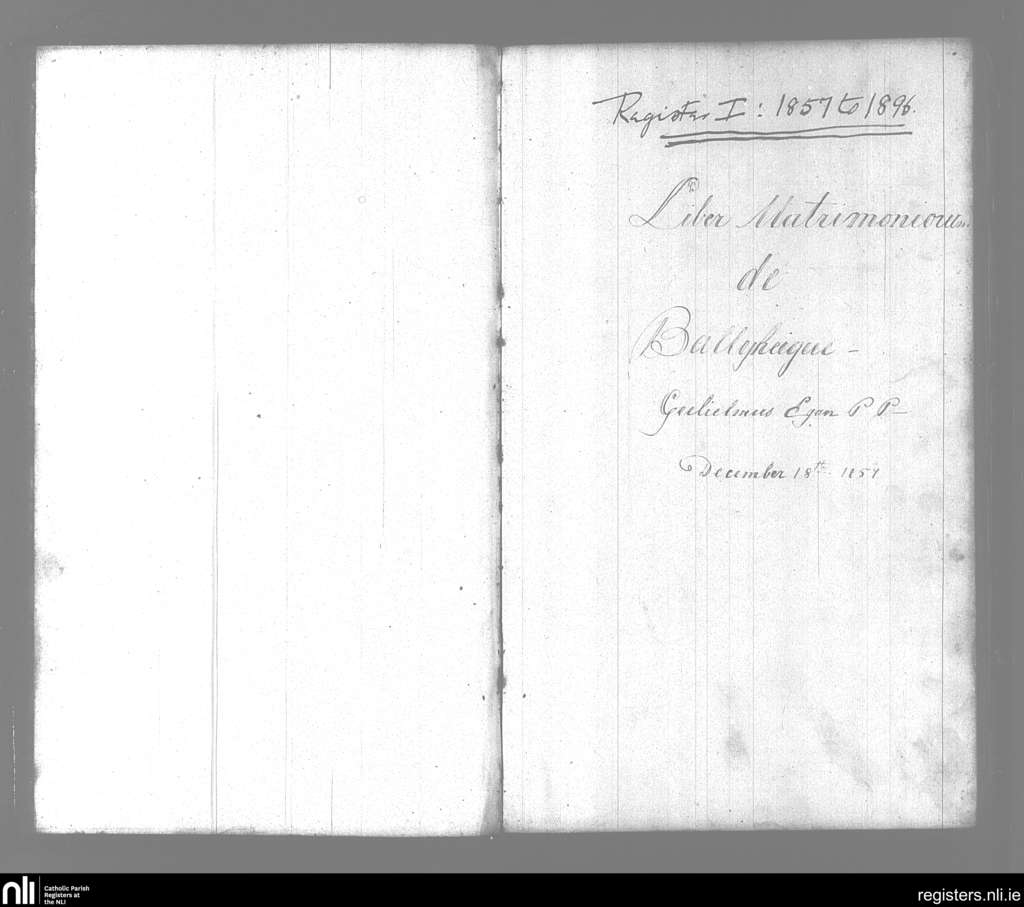 Register I: 1857 to 1896.
Liber Matrimoniorum
de
Ballyheigue -
Gulielmus Egan P P -
December 18th 1857
nli
Catholic Parish
Registers at
the NLI
registers.nli.ie